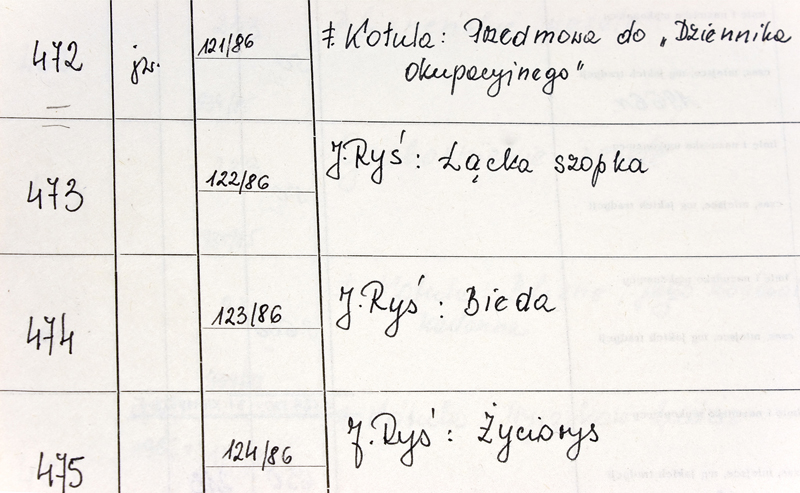 472 jw. 121/86 F. Kotula: Przedmowa do „Dziennika
okupacyjnego”
473 122/86 J. Ryś: Łącka szopka
474 123/86 J. Ryś: Bieda
475 124/86 J. Ryś: Życiorys